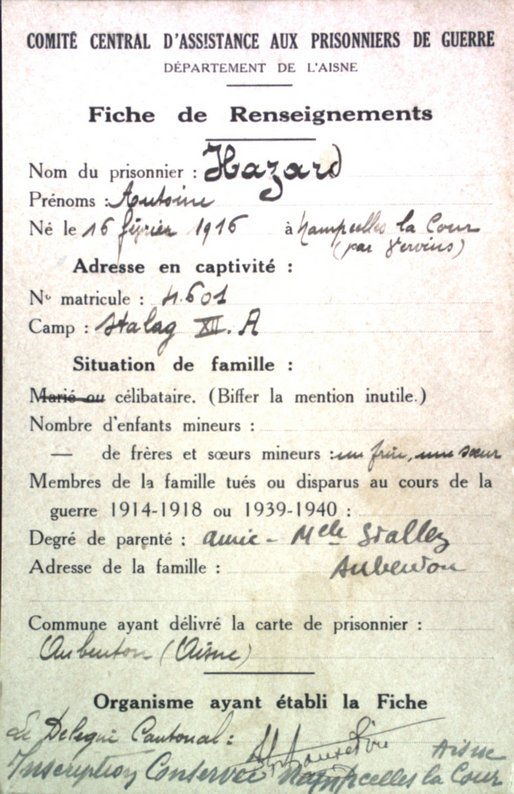 COMITÉ CENTRAL D'ASSISTANCE AUX PRISONNIERS DE GUERRE
DÉPARTEMENT DE L'AISNE
Fiche de Renseignements
Nom du prisonnier : Hazard
Prénoms : Antoine
Né le 16 février 1916 à Nampcelles la Cour
(par Vervins)
Adresse en captivité :
No matricule : 4.601
Camp : Stalag XII. A
Situation de famille :
Marié ou célibataire. (Biffer la mention inutile.)
Nombre d'enfants mineurs :
— de frères et sœurs mineurs : un frère, une sœur
Membres de la famille tués ou disparus au cours de la
guerre 1914-1918 ou 1939-1940 :
Degré de parenté : amie - Melle
Adresse de la famille : Aubenton
Commune ayant délivré la carte de prisonnier :
Aubenton (Aisne)
Organisme ayant établi la Fiche
Le Délégué Cantonal :
Aisne
Inscription Conservée Nampcelles la Cour